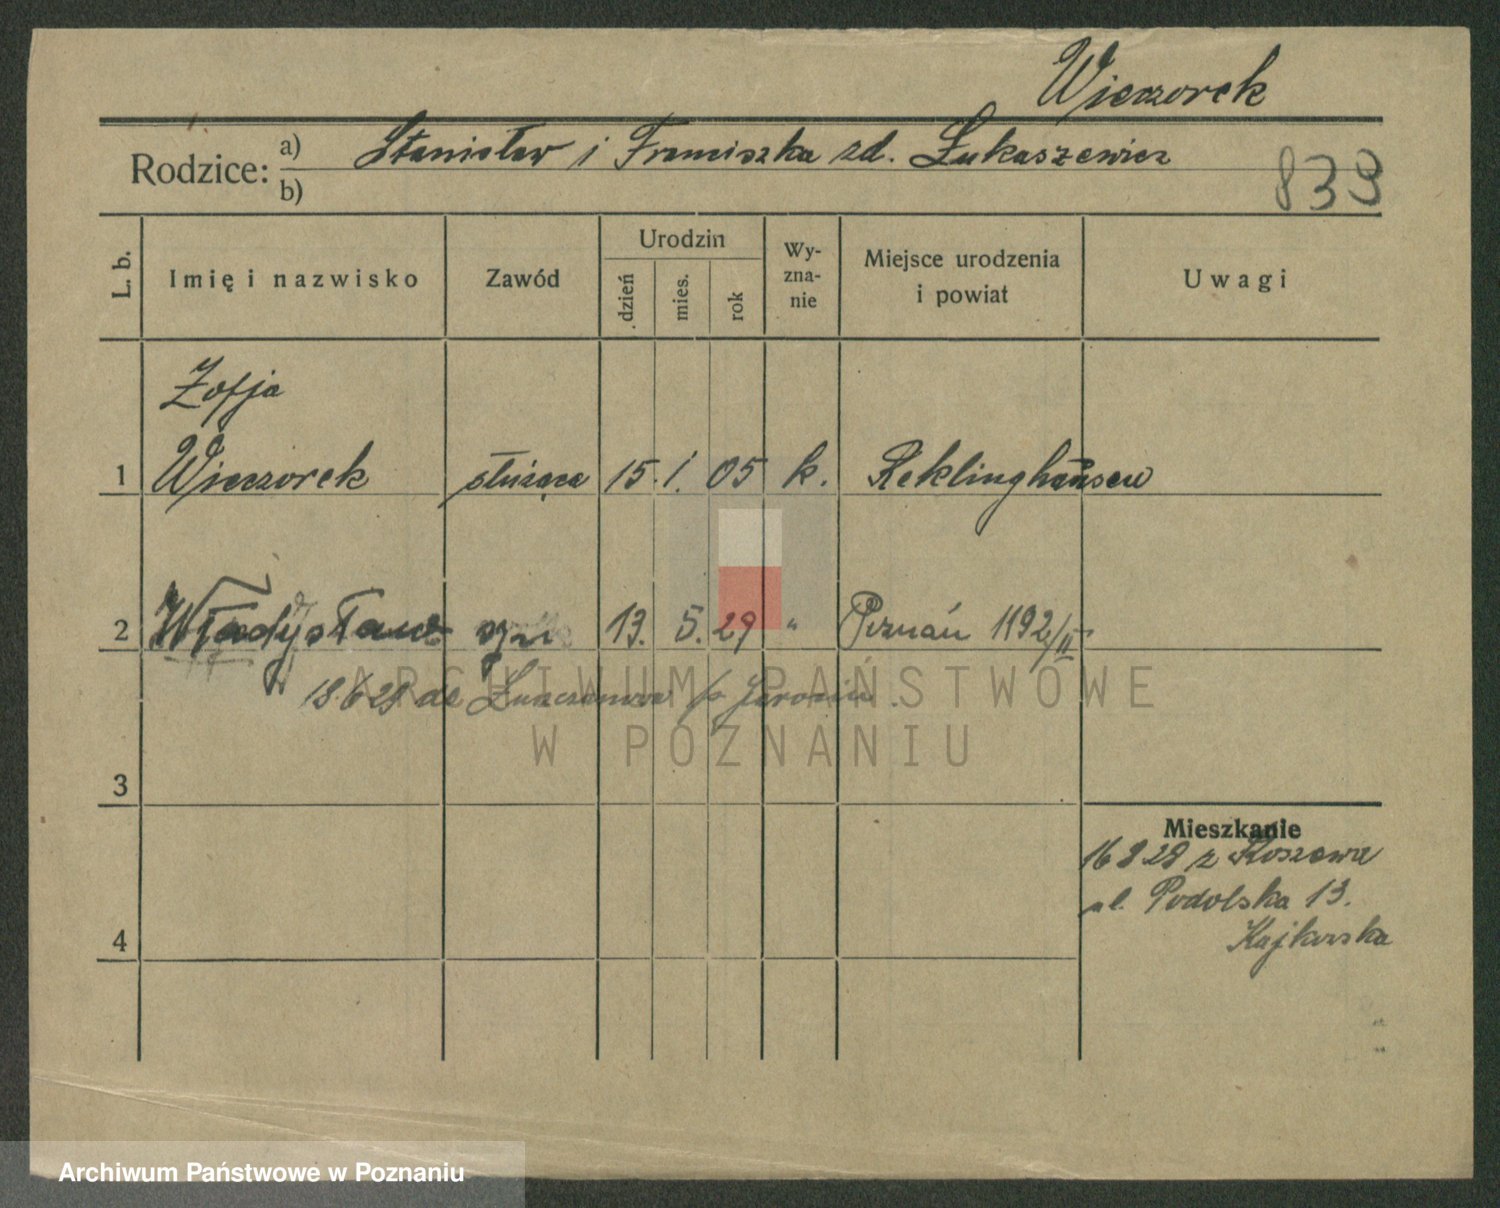 Wieczorek
Rodzice: a) Stanisław i Franciszka zd. Łukaszewicz
b)
839
L. b. Imię i nazwisko Zawód Urodzin dzień mies. rok Wyznanie Miejsce urodzenia i powiat Uwagi
Zofja
1 Wieczorek służąca 15. 1. 05 k. Reklinghausen
2 Władysław syn 13. 5. 29 " Poznań 1192/II
18.6.29 do p. Jarocin.
ARCHIWUM PAŃSTWOWE
W POZNANIU
3
Mieszkanie
16 9 28 z
ul. Podolska 13.
4
Archiwum Państwowe w Poznaniu